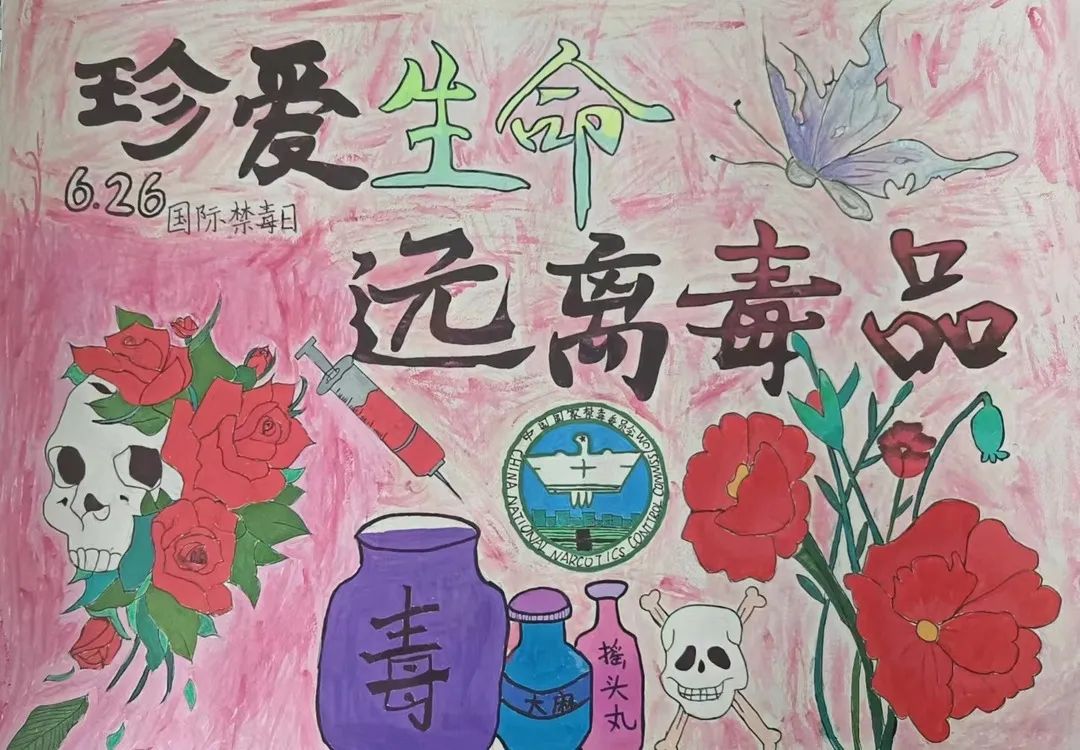 珍爱生命
6.26国际禁毒日
远离毒品
中国国家禁毒委员会
CHINA NATIONAL NARCOTICS CONTROL COMMISSION
毒
大麻
摇头丸